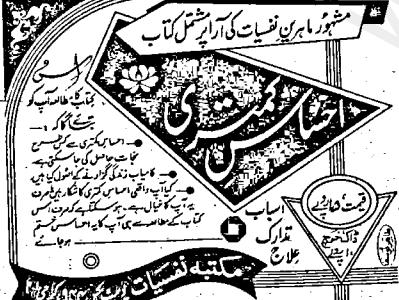 مشہور ماہرینِ نفسیات کی آرا پر مشتمل کتاب
احساس کمتری
اس
کتاب کا مطالعہ آپ کو
بتائے گا کہ :-
احساس کمتری سے کس طرح
نجات حاصل کی جا سکتی ہے
کامیاب زندگی گزارنے کے اصول کیا ہیں
کیا آپ واقعی احساس کمتری کا شکار ہیں یا صرف
یہ آپ کا خیال ہے ، ہو سکتا ہے کہ صرف اس
کتاب کے مطالعہ سے ہی آپ کا یہ احساس ختم
ہو جائے
اسباب
تدارک
علاج
قیمت
روپے
ڈاک خرچ
روپے
مکتبہ نفسیات